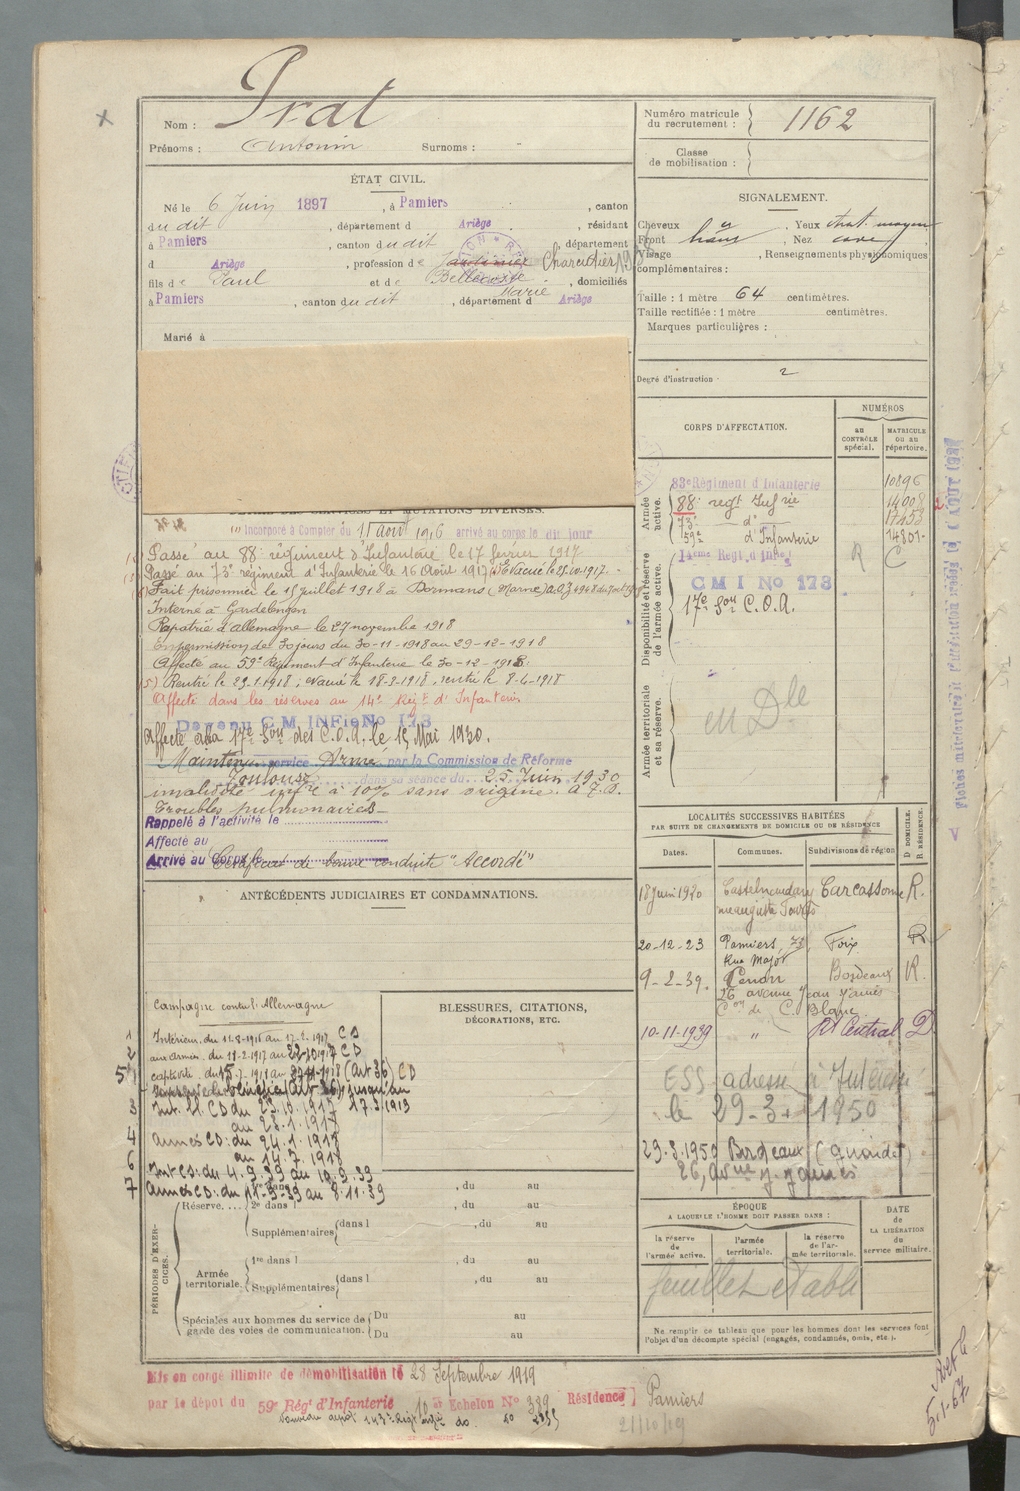 Nom : Prat
Prénoms : Antonin Surnoms : -
Numéro matricule du recrutement : 1162
Classe de mobilisation :
ÉTAT CIVIL.
Né le 6 Juin 1897, à Pamiers, canton
du dit, département d Ariège, résidant
à Pamiers, canton du dit, département
d Ariège, profession de Jardinier Charcutier
fils de Paul et de Bellecoste Marie, domiciliés
à Pamiers, canton du dit, département d Ariège
Marié à
SIGNALEMENT.
Cheveux Yeux chat. moyen
Front haut, Nez cave
Visage , Renseignements physionomiques
complémentaires :
Taille : 1 mètre 64 centimètres.
Taille rectifiée : 1 mètre centimètres.
Marques particulières :
Degré d'instruction 2
CORPS D'AFFECTATION.
NUMÉROS
au CONTRÔLE spécial.
MATRICULE ou au répertoire.
Armée active.
83e Régiment d'Infanterie 10896
88e regt Infrie 14008
73e d° 17453
59e d'Infanterie 14801
Disponibilité et réserve de l'armée active.
14ème Régt. d'Infie R C
C M I No 173
17e Son C.O.A.
Armée territoriale et sa réserve.
en Dle
DÉTAIL DES SERVICES ET MUTATIONS DIVERSES.
Incorporé à Compter du 11 août 1916 arrivé au corps le dit jour
Passé au 88e régiment d'Infanterie le 17 février 1917
Passé au 73e régiment d'Infanterie le 16 Août 1917 Evacué le 23.10.1917.
Fait prisonnier le 15 juillet 1918 à Dormans (Marne)
Interné à Gardelengen
Rapatrié d'allemagne le 27 novembre 1918
En permission de 30 jours du 30-11-1918 au 29-12-1918
Affecté au 59e Régiment d'Infanterie le 30-12-1918.
(5) Rentré le 29.1.1918 ; évacué le 18-3-1918 . rentré le 8-4-1918
Affecté dans les réserves au 14e Régt d'Infanterie
Devenu C M INFie No 173
Affecté à la 17e Son des C.O.A. le 15 Mai 1930.
Maintenu service Armé par la Commission de Réforme
Toulouse dans sa séance du 25 Juin 1930
invalidité infre à 10% sans origine.
Troubles pulmonaires
Rappelé à l'activité le
Affecté au
Arrivé au Corps le
Certificat de bonne conduite "Accordé"
ANTÉCÉDENTS JUDICIAIRES ET CONDAMNATIONS.
LOCALITÉS SUCCESSIVES HABITÉES
PAR SUITE DE CHANGEMENTS DE DOMICILE OU DE RÉSIDENCE
Dates. Communes. Subdivisions de région D DOMICILE. R RÉSIDENCE.
18 Juin 1920 Castelnaudary Carcassonne R.
20-12-23 Pamiers, 73, Rue Major Foix R
9-2-39. Cenon Bordeaux R.
26 avenue Jean Jaurès
10-11-1939 " Rt Central D
ESS adresse à Intéressé
le 29-3- 1950
Bordeaux
26, avnue J. Jaurès
Campagne contre l'Allemagne
Intérieur du 11-8-1916 au 17-2-1917 CD
aux armées du 18-2-1917 au 22-10-1917 CD
captivité du 15-7-1918 au (art 36) CD
3 Int. CD du 23.10.1917
au 28.1.1918
4 armées CD: du 24.1.1918
au 14.7.1918
6 Int CS: du 4.9.39 au 10.9.39
7 armes CD: du 11-9-39 au 8.11.39
BLESSURES, CITATIONS,
DÉCORATIONS, ETC.
PÉRIODES D'EXERCICES.
, du au
Réserve. 2e dans l , du au
Supplémentaires dans l , du au
Armée territoriale. 1re dans l , du au
Supplémentaires dans l , du au
Spéciales aux hommes du service de garde des voies de communication. Du au
Du au
ÉPOQUE
A LAQUELLE L'HOMME DOIT PASSER DANS :
la réserve de l'armée active.
l'armée territoriale.
la réserve de l'armée territoriale.
DATE de LA LIBÉRATION du service militaire.
feuillet établi
Ne remplir ce tableau que pour les hommes dont les services font l'objet d'un décompte spécial (engagés, condamnés, omis, etc.).
Mis en congé illimité de démobilisation le 28 Septembre 1919
par le dépot du 59e Rég. d'Infanterie 10 Echelon No 389 Résidence Pamiers
21/10/19
5.1.67.